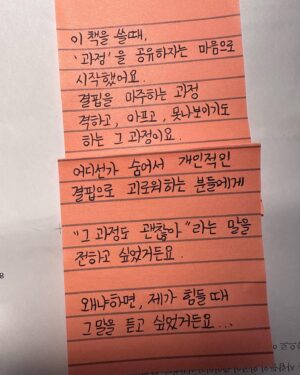 이 책을 쓸때,
'과정'을 공유하자는 마음으로
시작했어요.
결핍을 마주하는 과정
격하고, 아프고, 못나보이기도
하는 그 과정이요.
어디선가 숨어서 개인적인
결핍으로 괴로워하는 분들에게
"그 과정도 괜찮아"라는 말을
전하고 싶었거든요.
왜냐하면, 제가 힘들 때
그말을 듣고 싶었거든요...